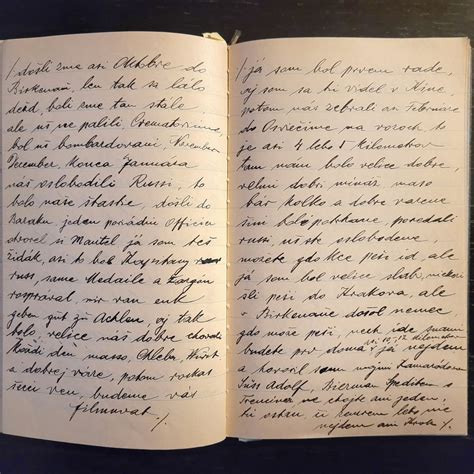 došli zme asi Oktobre do
Birkenani, len tak sa lálo
dežd, boli zme tam stále,
ale už ne palili, Crematorium
bol už bombardovaní, November
December, konca Jannára
nás oslobodili Russi, to
bolo naše štastie, došli do
Baraku jeden poriádni Officier
otvorel si Mantel já som tež
židák, asi to bol
russ, same Medaile a Žargon
rospraval, mir van enk
geben gut zu Achlen, oj tak
bolo, velice nás dobre chovali
Každi den masso, Chleba, Wurst
a dobrej váre, potom roskas
šeci ven, budeme vás
filmovat ./.
já som bol prvem rade,
oj som sa ti videl v Kine,
potom nás zebrali asi Februáre
do Osviečime na vozoch to
je asi 4 lebo 5 Kilometrov
tam nám bolo velice dobre,
velmi dobri mináž, masso
bár kolko a dobre varene
šini boli potrhane, povedali
russi, ni ste oslobodene,
možete gdo kce peši id, ale
já som bol velice slabi, niekori
šli peši do Krakova, ale
v Birkenane došol nemec,
gdo može peši, nech ide
budete prv doma, já nejdem
asi 10, 12 kilometrov
a hovorel som mojim Kamarádom
Süss Adolf, Bierman Špediter s
Trenčina ne chojte ani jeden,
ti ostru u
nejdem ani Krok ./.